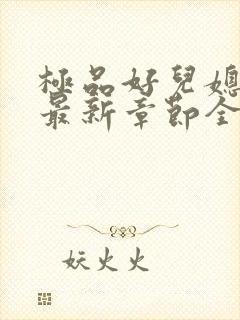 極品好兒媳
最新章節全
妖火火